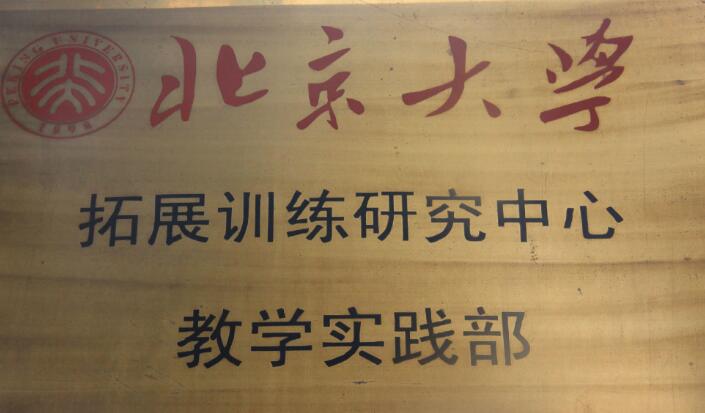 PEKING UNIVERSITY
1898
北京大学
拓展训练研究中心
教学实践部